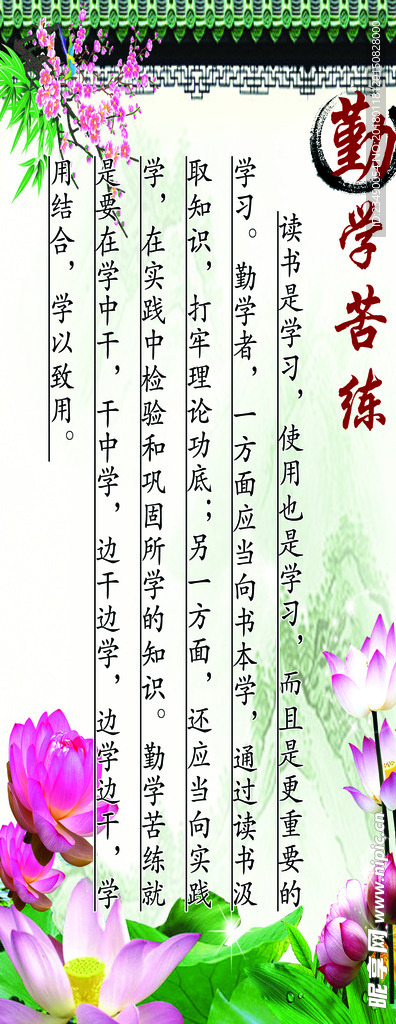 勤学苦练
读书是学习，使用也是学习，而且是更重要的
学习。勤学者，一方面应当向书本学，通过读书汲
取知识，打牢理论功底；另一方面，还应当向实践
学，在实践中检验和巩固所学的知识。勤学苦练就
是要在学中干，干中学，边干边学，边学边干，学
用结合，学以致用。
昵享网 www.nipic.cn